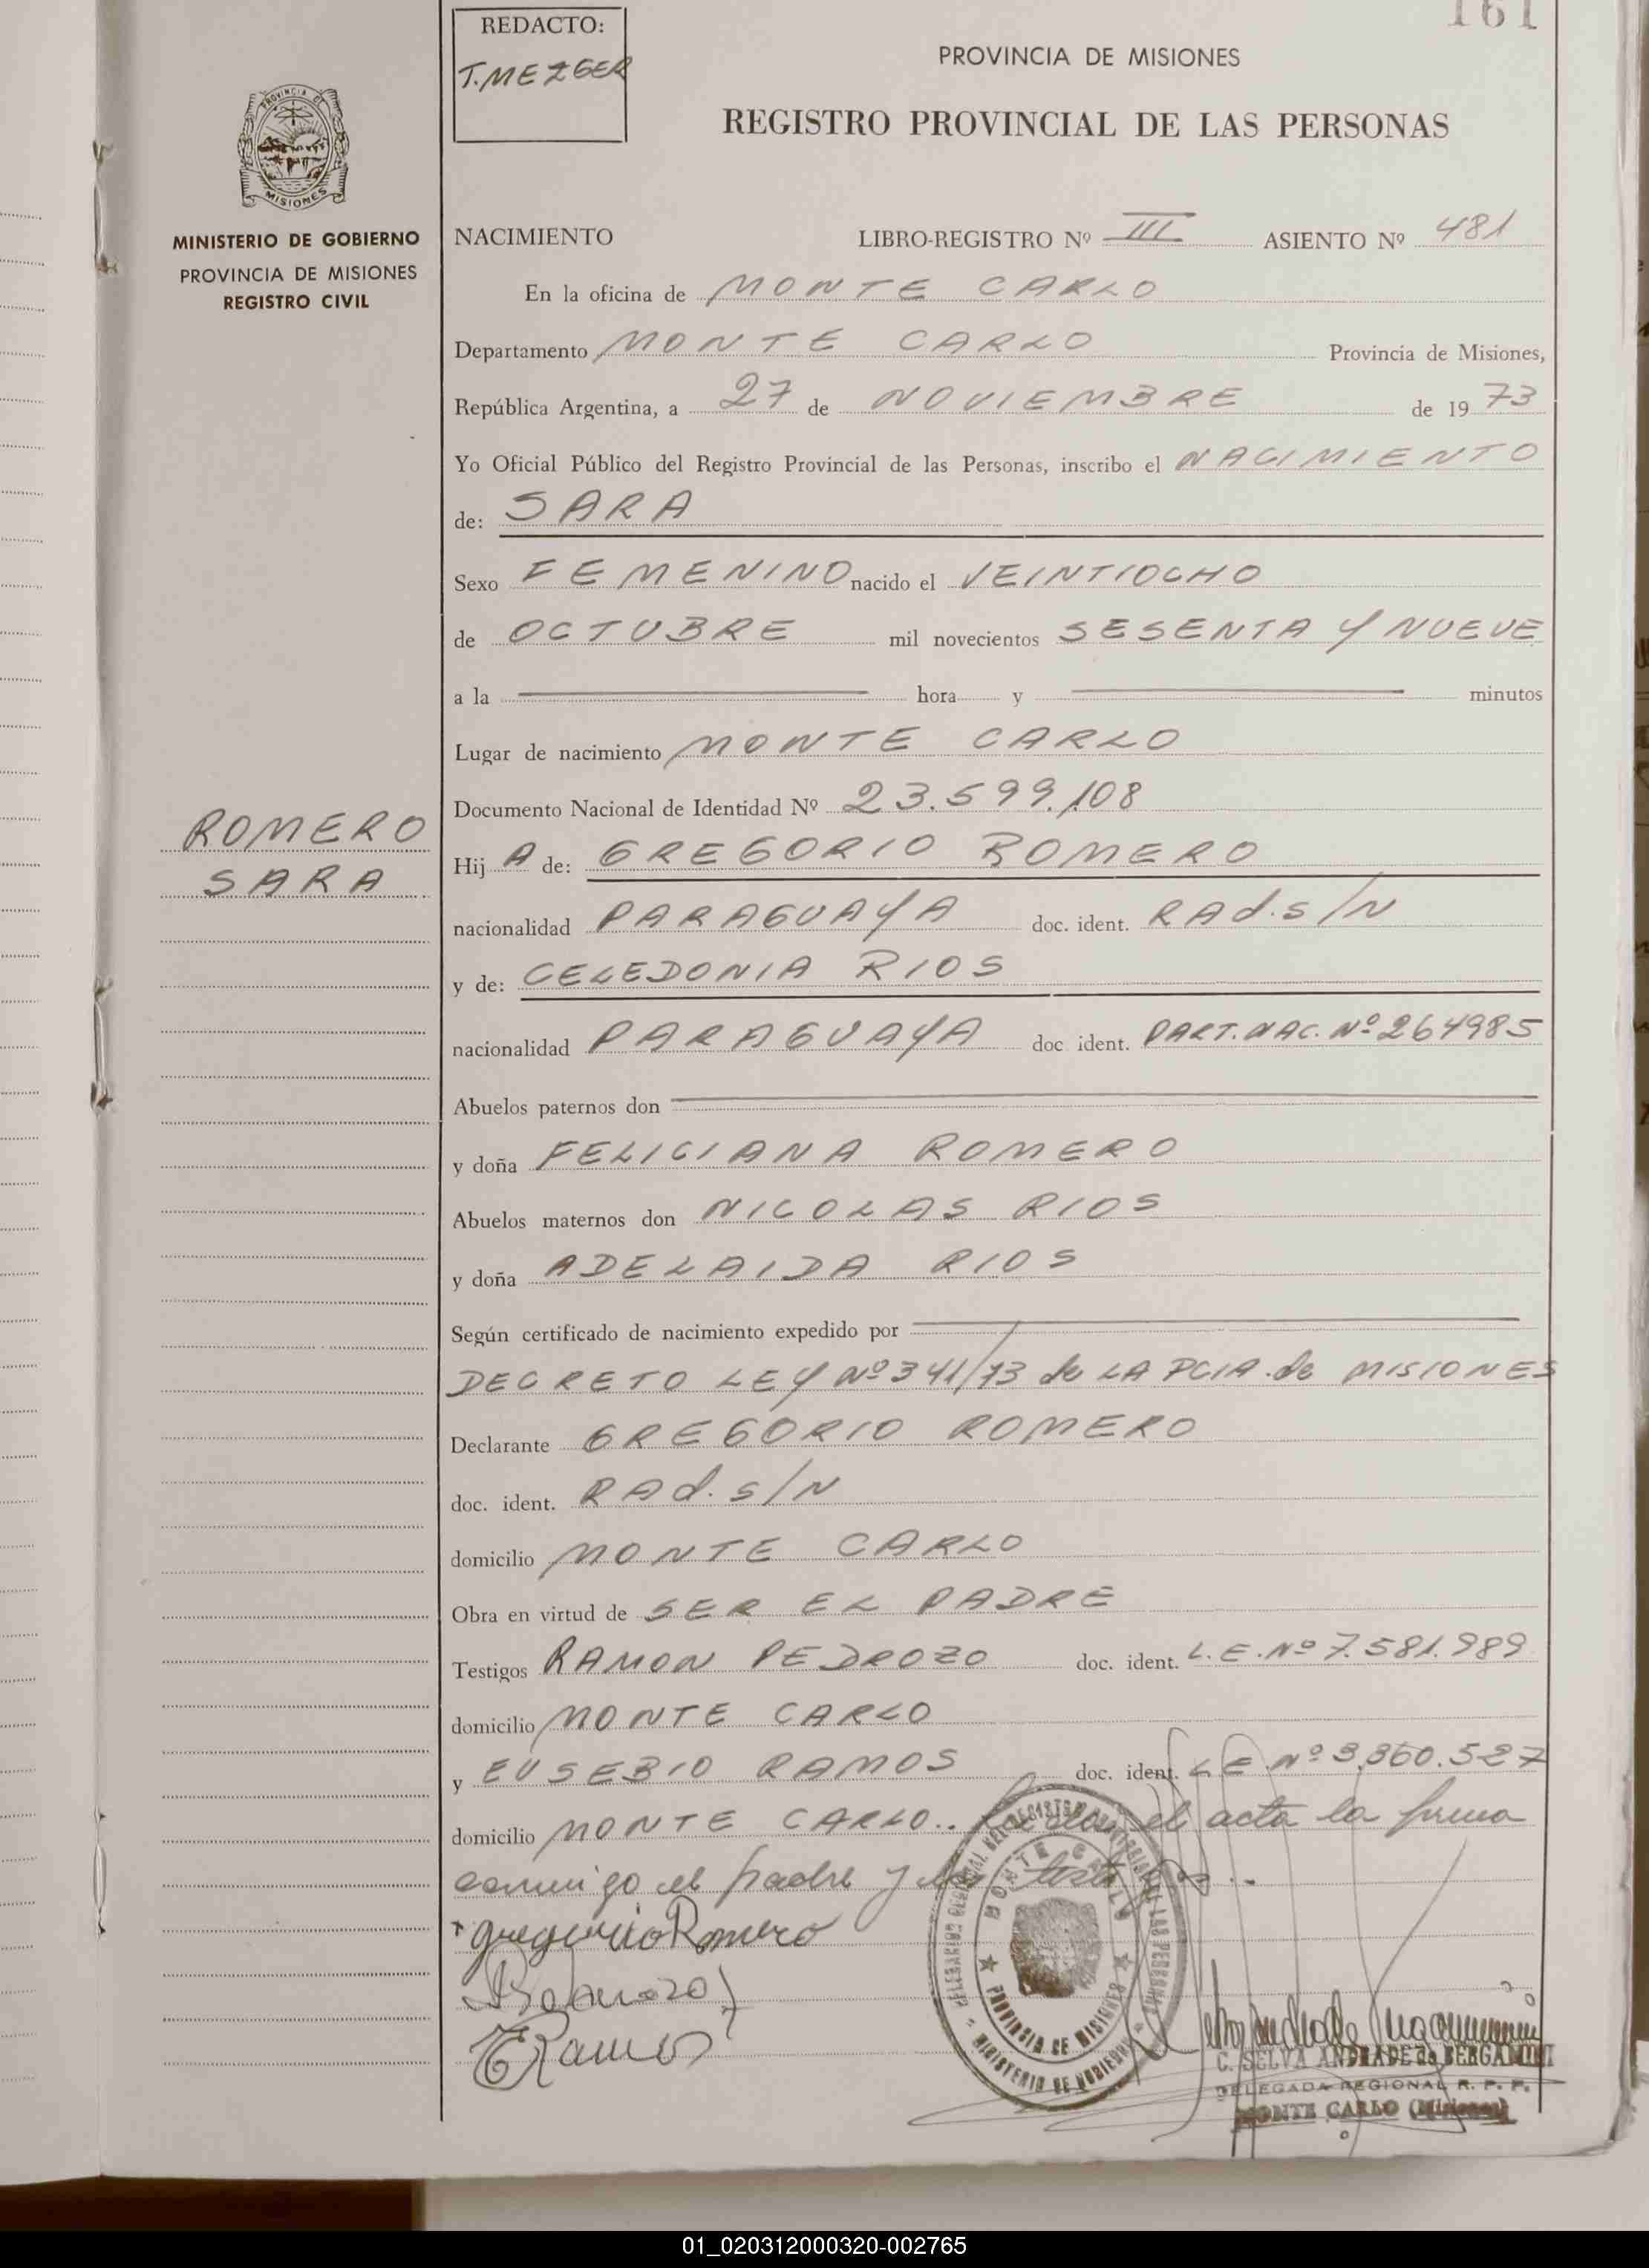 161
REDACTO:
T. MEZGER
PROVINCIA DE MISIONES
REGISTRO PROVINCIAL DE LAS PERSONAS
PROVINCIA DE
MISIONES
MINISTERIO DE GOBIERNO
PROVINCIA DE MISIONES
REGISTRO CIVIL
NACIMIENTO LIBRO-REGISTRO Nº III ASIENTO Nº 481
En la oficina de MONTE CARLO
Departamento MONTE CARLO Provincia de Misiones,
República Argentina, a 27 de NOVIEMBRE de 19 73
Yo Oficial Público del Registro Provincial de las Personas, inscribo el NACIMIENTO
de: SARA
Sexo FEMENINO nacido el VEINTIOCHO
de OCTUBRE mil novecientos SESENTA Y NUEVE
a la hora y minutos
Lugar de nacimiento MONTE CARLO
Documento Nacional de Identidad Nº 23.599.108
ROMERO
SARA
Hij A de: GREGORIO ROMERO
nacionalidad PARAGUAYA doc. ident. RAd. s/N
y de: CELEDONIA RIOS
nacionalidad PARAGUAYA doc ident. PART. NAC. Nº 264985
Abuelos paternos don
y doña FELICIANA ROMERO
Abuelos maternos don NICOLAS RIOS
y doña ADELAIDA RIOS
Según certificado de nacimiento expedido por
DECRETO LEY Nº 341/73 de LA PCIA. de MISIONES
Declarante GREGORIO ROMERO
doc. ident. RAd. s/N
domicilio MONTE CARLO
Obra en virtud de SER EL PADRE
Testigos RAMON PEDROZO doc. ident. L.E. Nº 7.581.989
domicilio MONTE CARLO
y EUSEBIO RAMOS doc. ident. L E Nº 3.360.527
domicilio MONTE CARLO.. el acta la firma
conmigo el padre y los testigos..
Gregorio Romero
E Ramos
MONTE CARLO
PROVINCIA DE MISIONES
MINISTERIO DE GOBIERNO
C. SELVA ANDRADE de BERGAMINI
DELEGADA REGIONAL R. P. P.
MONTE CARLO (Misiones)
01_020312000320-002765